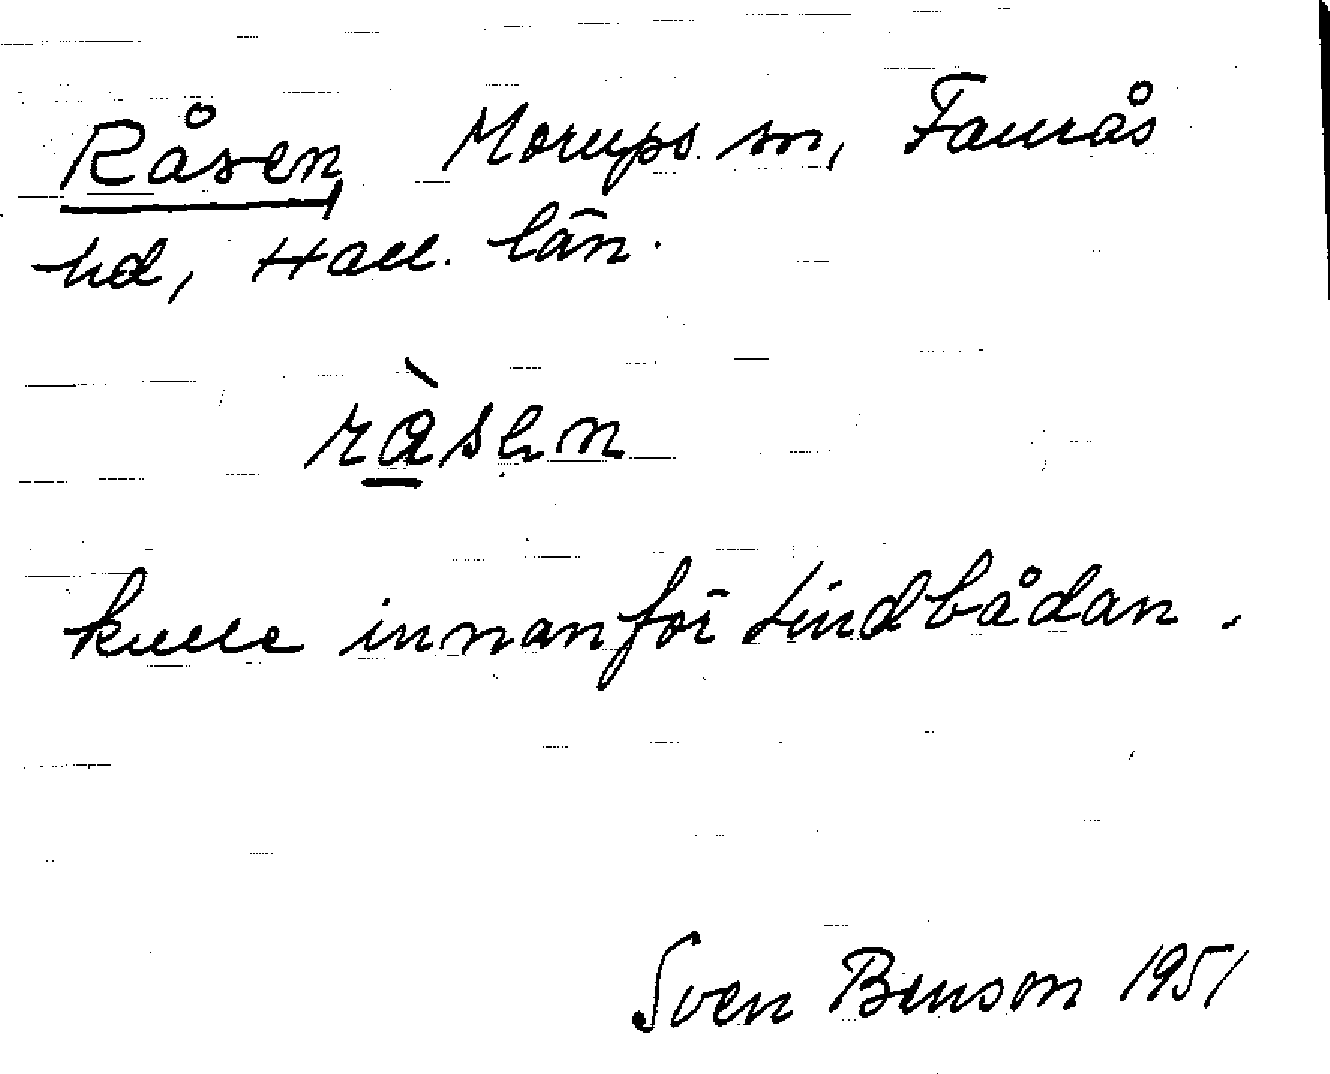 Råsen, Morups sn, Faurås
hd, Hall. län.
ràsen
kulle innanför Lindbådan.
Sven Benson 1951